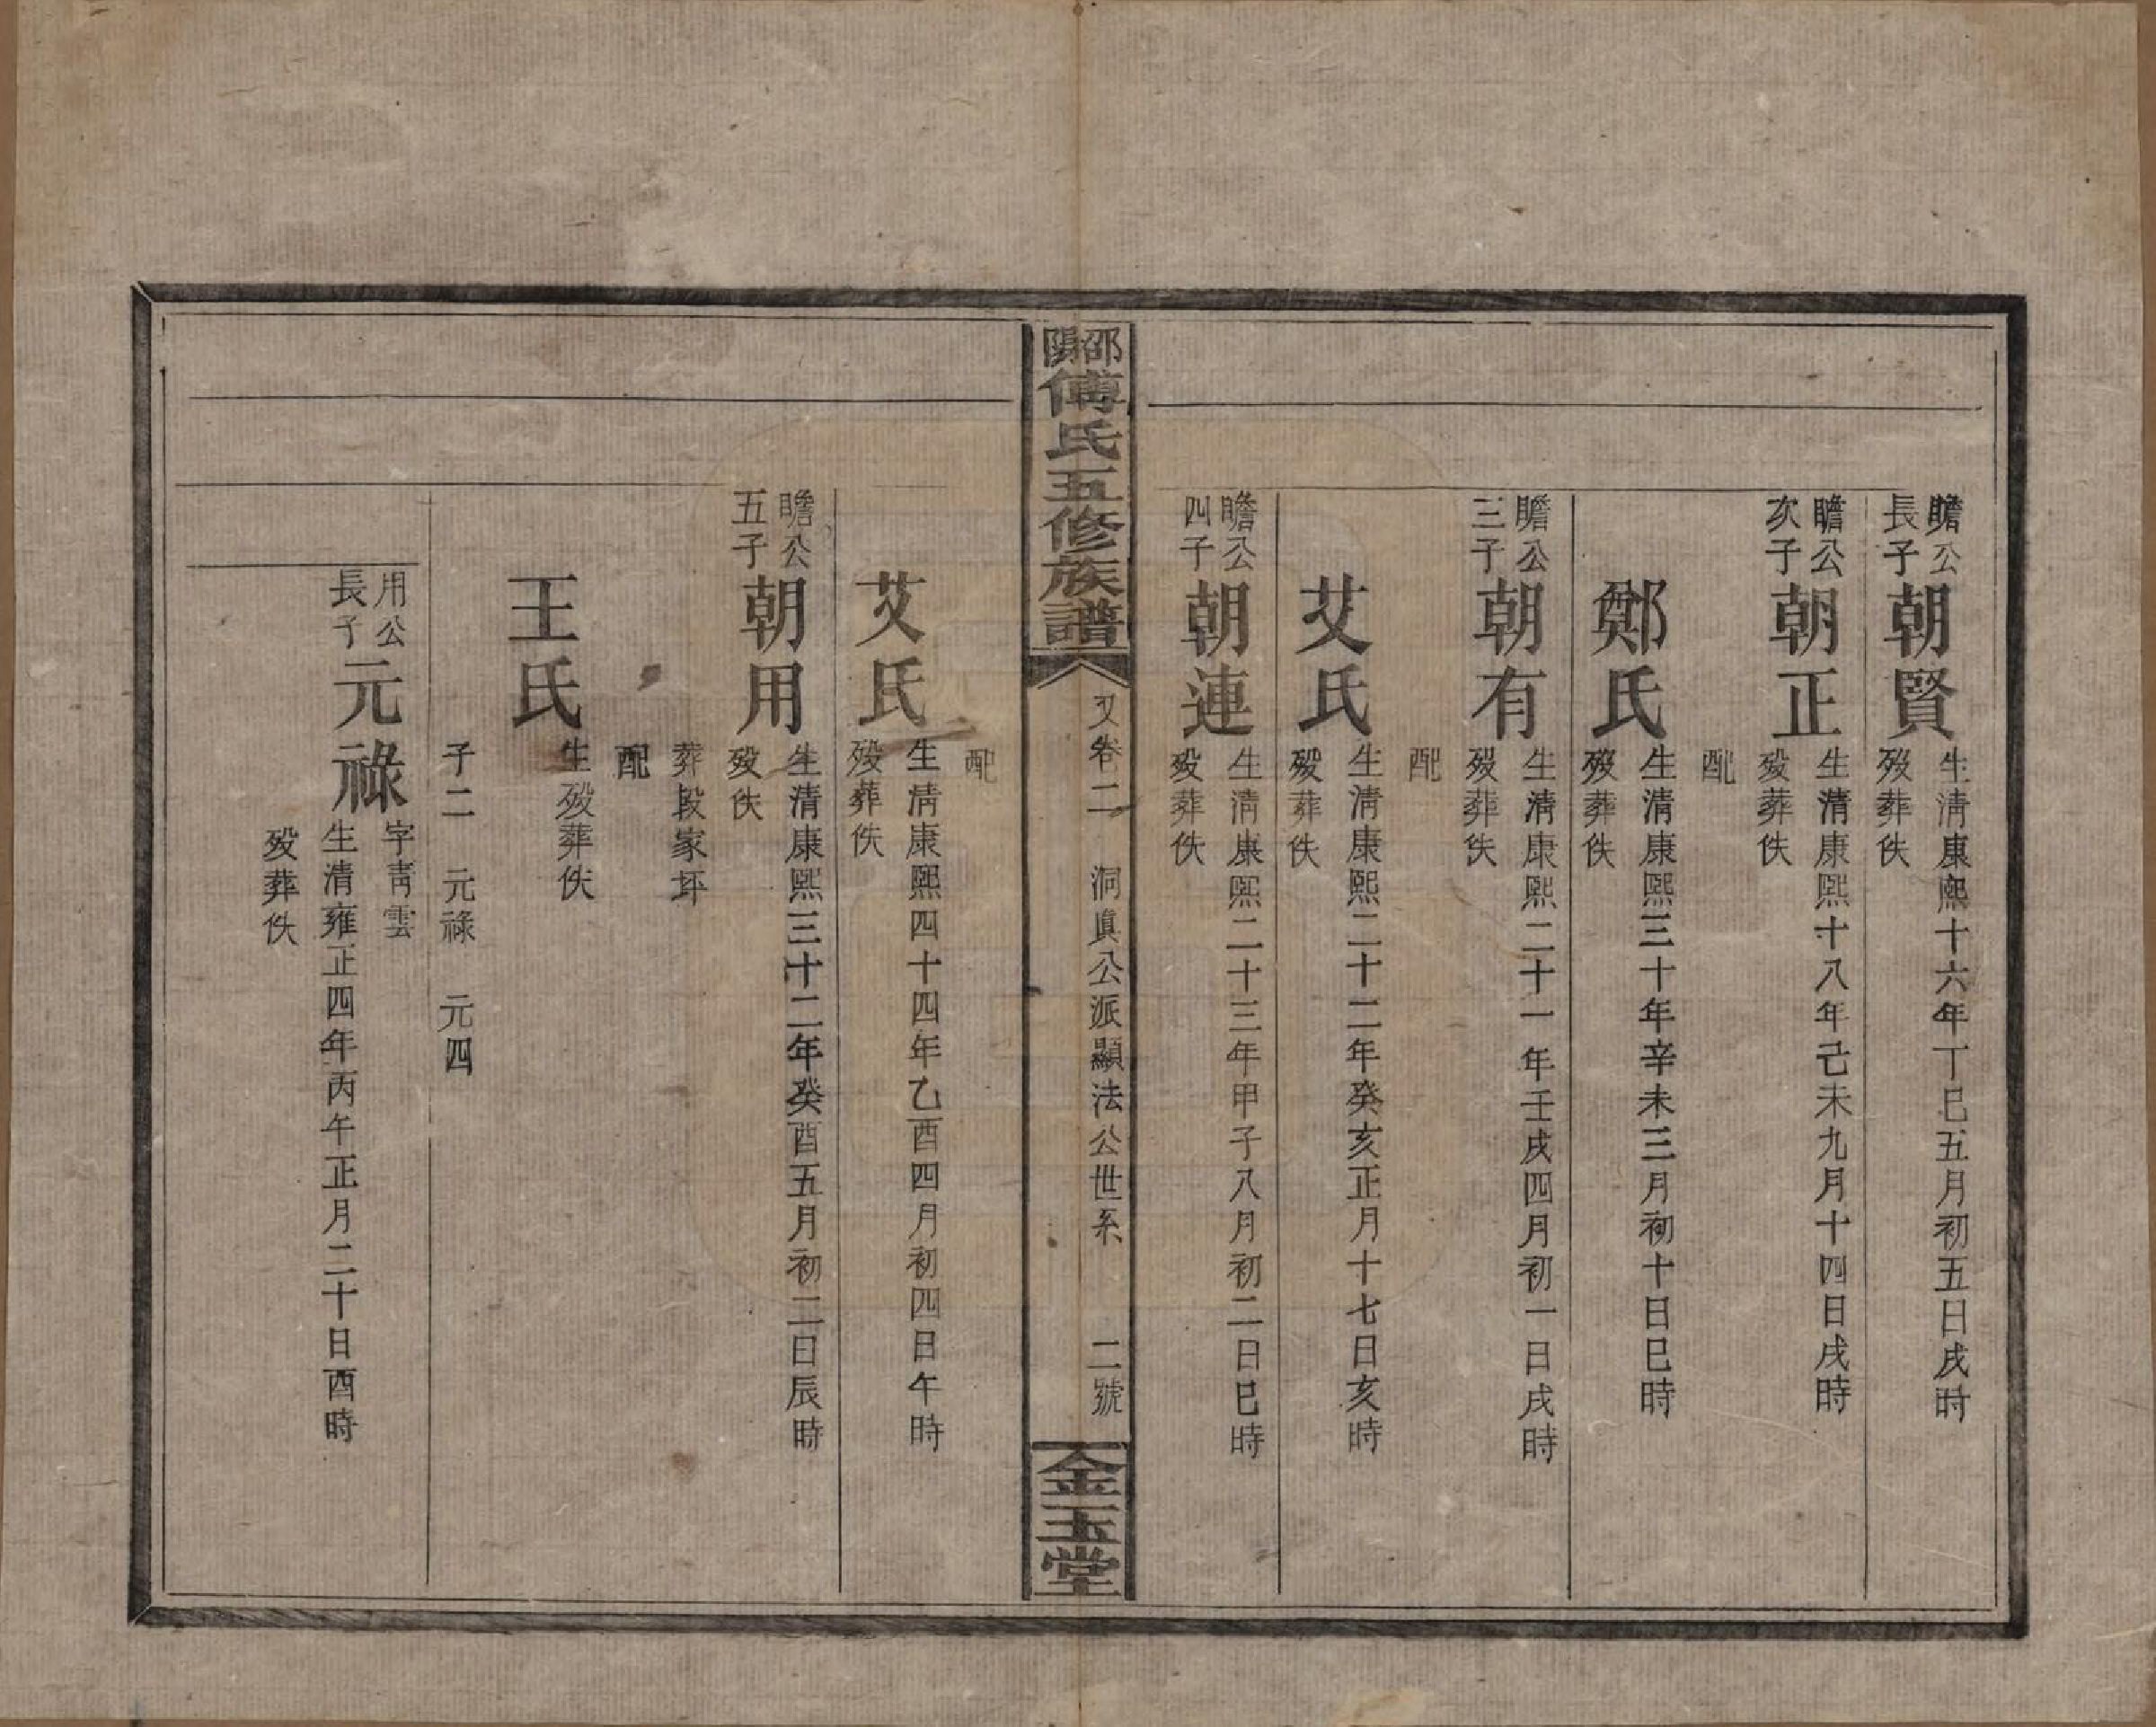 瞻公
長子
朝賢
生清康熙十六年丁巳五月初五日戌時
歿葬佚
瞻公
次子
朝正
生清康熙十八年己未九月十四日戌時
歿葬佚
配
鄭氏
生清康熙三十年辛未三月初十日巳時
歿葬佚
瞻公
三子
朝有
生清康熙二十一年壬戌四月初一日戌時
歿葬佚
配
艾氏
生清康熙二十二年癸亥正月十七日亥時
歿葬佚
瞻公
四子
朝連
生清康熙二十三年甲子八月初二日巳時
歿葬佚
邵陽傅氏五修族譜
又卷二 洞眞公派顯法公世系 二號
金玉堂
配
艾氏
生清康熙四十四年乙酉四月初四日午時
歿葬佚
瞻公
五子
朝用
生清康熙三十二年癸酉五月初二日辰時
歿佚
葬段家坏
配
王氏
生歿葬佚
子二 元祿 元四
用公
長子
元祿
字靑雲
生清雍正四年丙午正月二十日酉時
歿葬佚